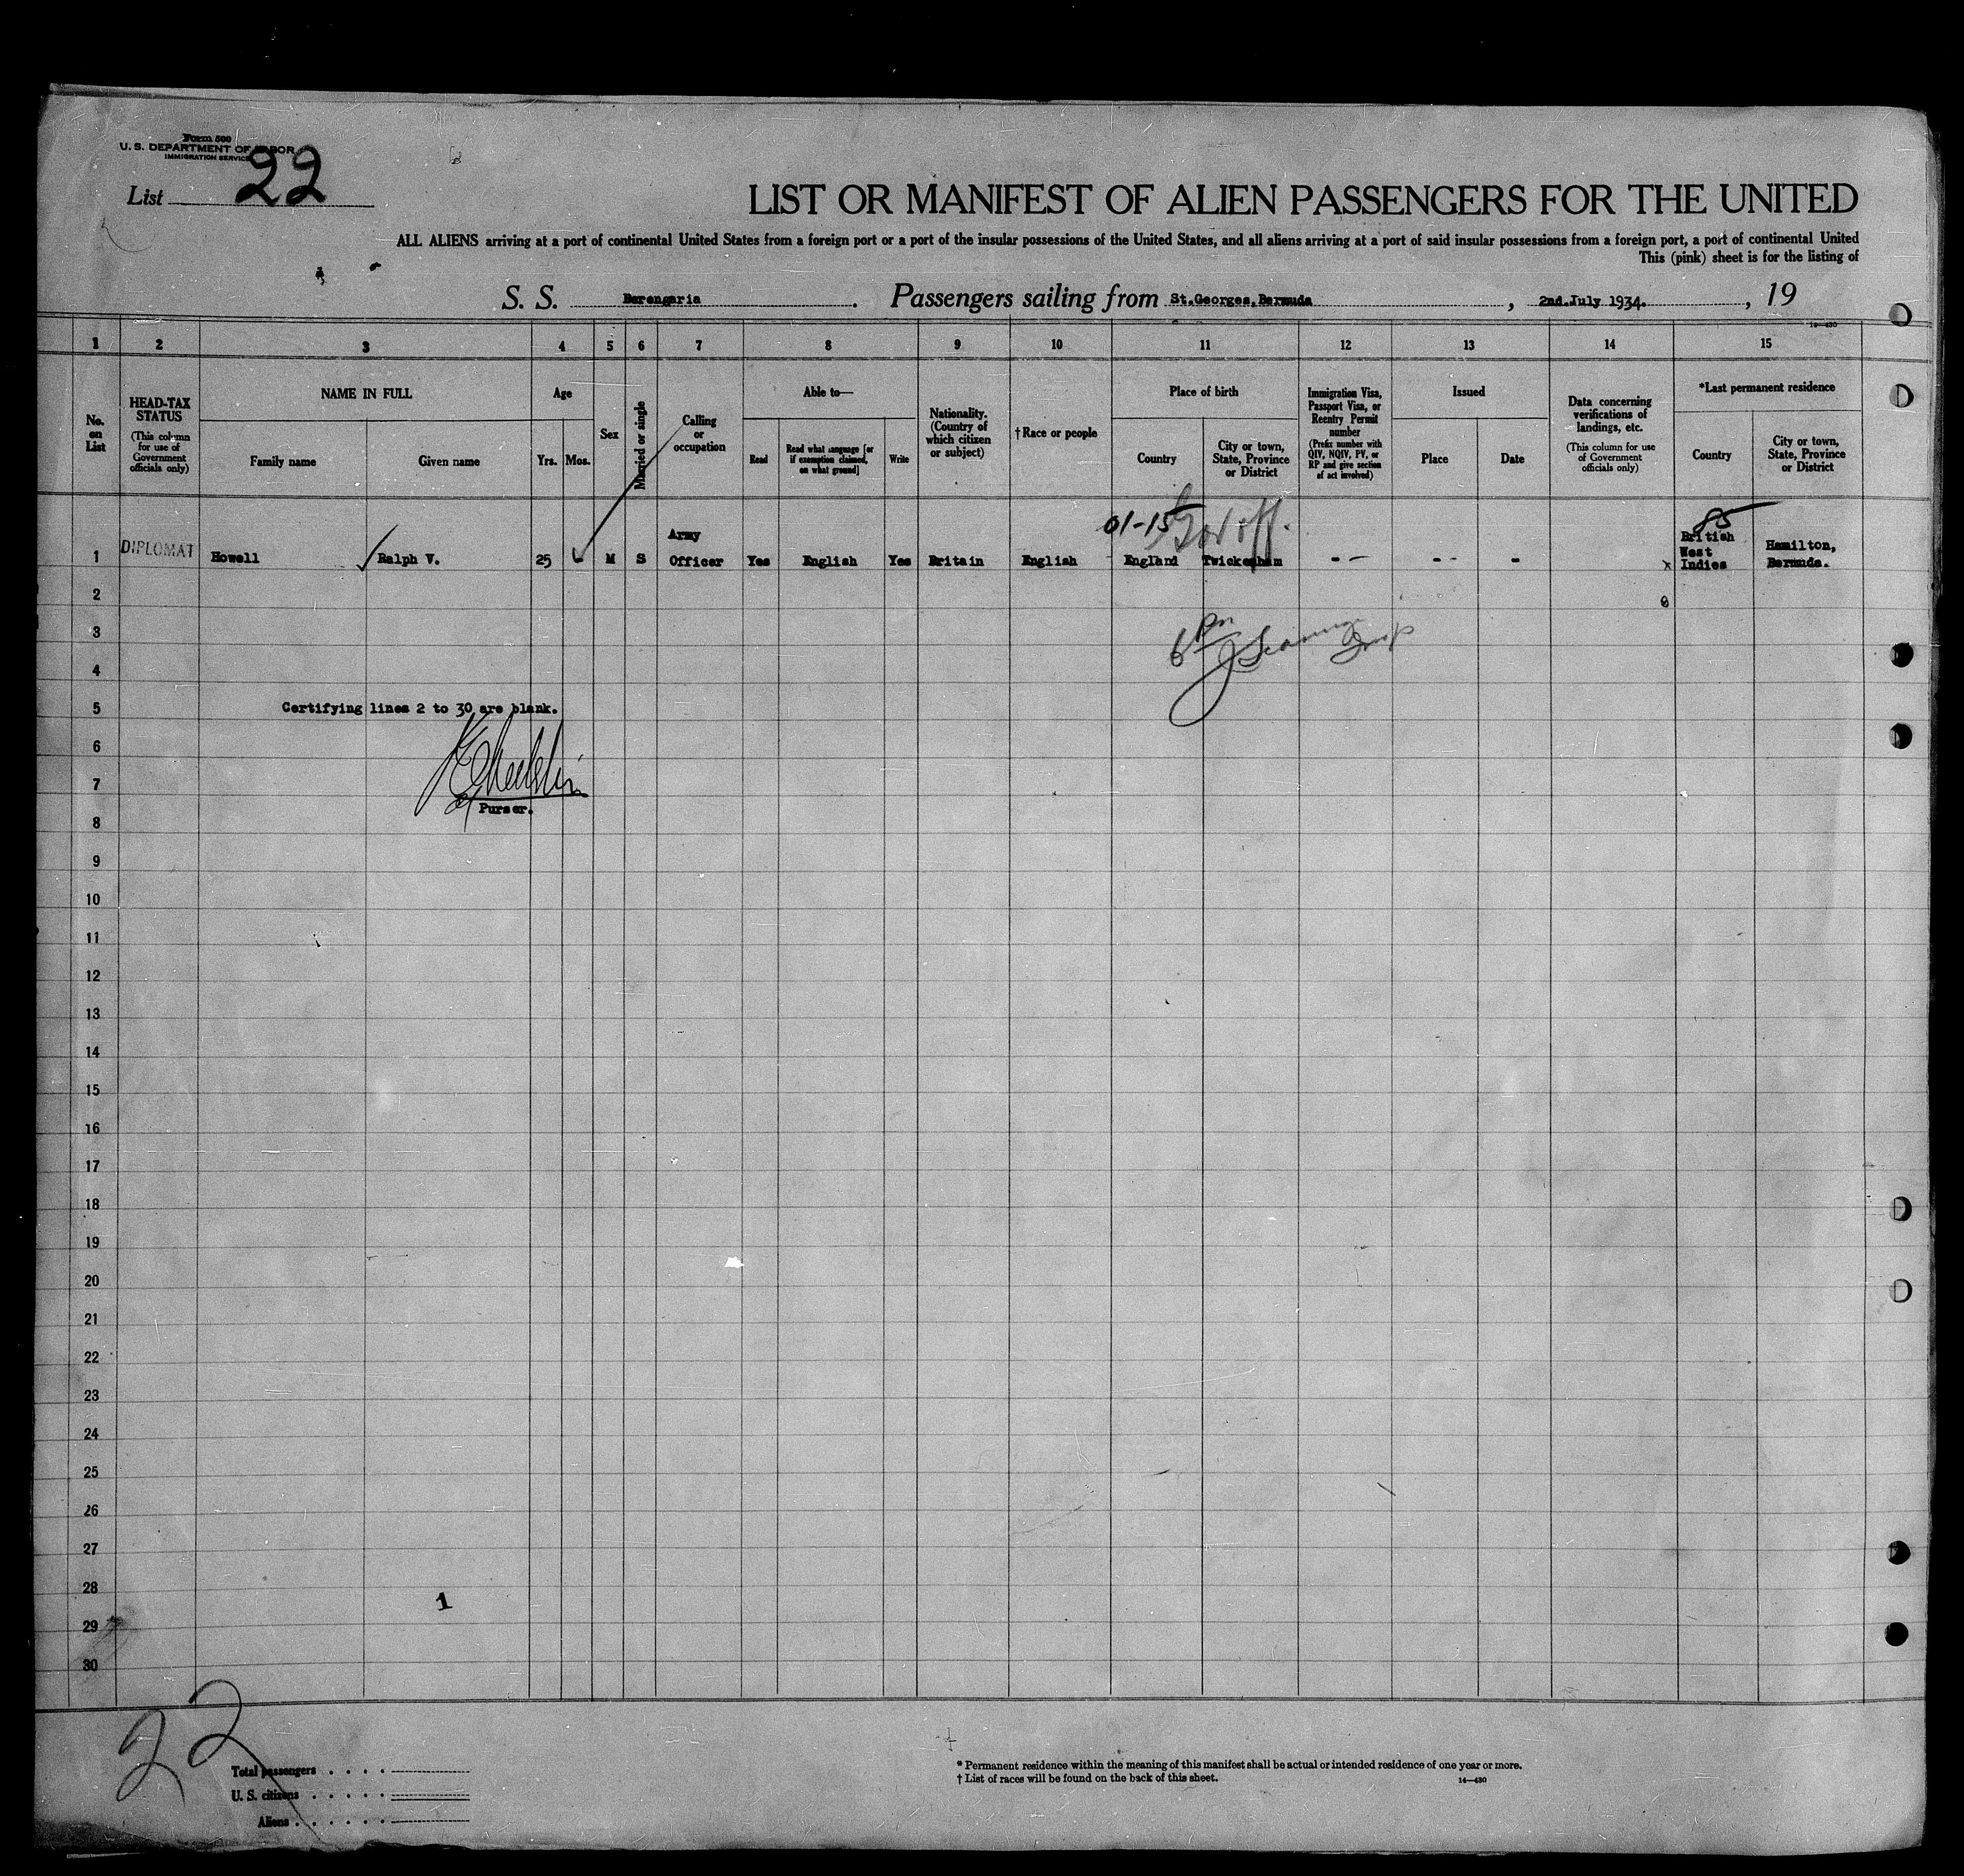 Form 500
U. S. DEPARTMENT OF LABOR
IMMIGRATION SERVICE
List 22
LIST OR MANIFEST OF ALIEN PASSENGERS FOR THE UNITED
ALL ALIENS arriving at a port of continental United States from a foreign port or a port of the insular possessions of the United States, and all aliens arriving at a port of said insular possessions from a foreign port, a port of continental United
This (pink) sheet is for the listing of
S. S. Berengaria. Passengers sailing from St.Georges,Bermuda, 2nd.July 1934., 19
14—430
1 2 3 4 5 6 7 8 9 10 11 12 13 14 15
No. on List
HEAD-TAX STATUS
(This column for use of Government officials only)
NAME IN FULL
Family name
Given name
Age
Yrs.
Mos.
Sex
Married or single
Calling or occupation
Able to—
Read
Read what language [or if exemption claimed, on what ground]
Write
Nationality. (Country of which citizen or subject)
†Race or people
Place of birth
Country
City or town, State, Province or District
Immigration Visa, Passport Visa, or Reentry Permit number
(Prefix number with QIV, NQIV, PV, or RP and give section of act involved)
Issued
Place
Date
Data concerning verifications of landings, etc.
(This column for use of Government officials only)
*Last permanent residence
Country
City or town, State, Province or District
01-15 Gov off. 85
1 DIPLOMAT Howell Ralph V. 25 M S Army Officer Yes English Yes Britain English England Twickenham - - - - - x British West Indies Hamilton, Bermuda.
2
3
4
5 Certifying lines 2 to 30 are blank.
6
7
Purser.
8
9
10
11
12
13
14
15
16
17
18
19
20
21
22
23
24
25
26
27
28
1
29
30
22
Total passengers
U. S. citizens
Aliens
* Permanent residence within the meaning of this manifest shall be actual or intended residence of one year or more.
† List of races will be found on the back of this sheet.
14—430